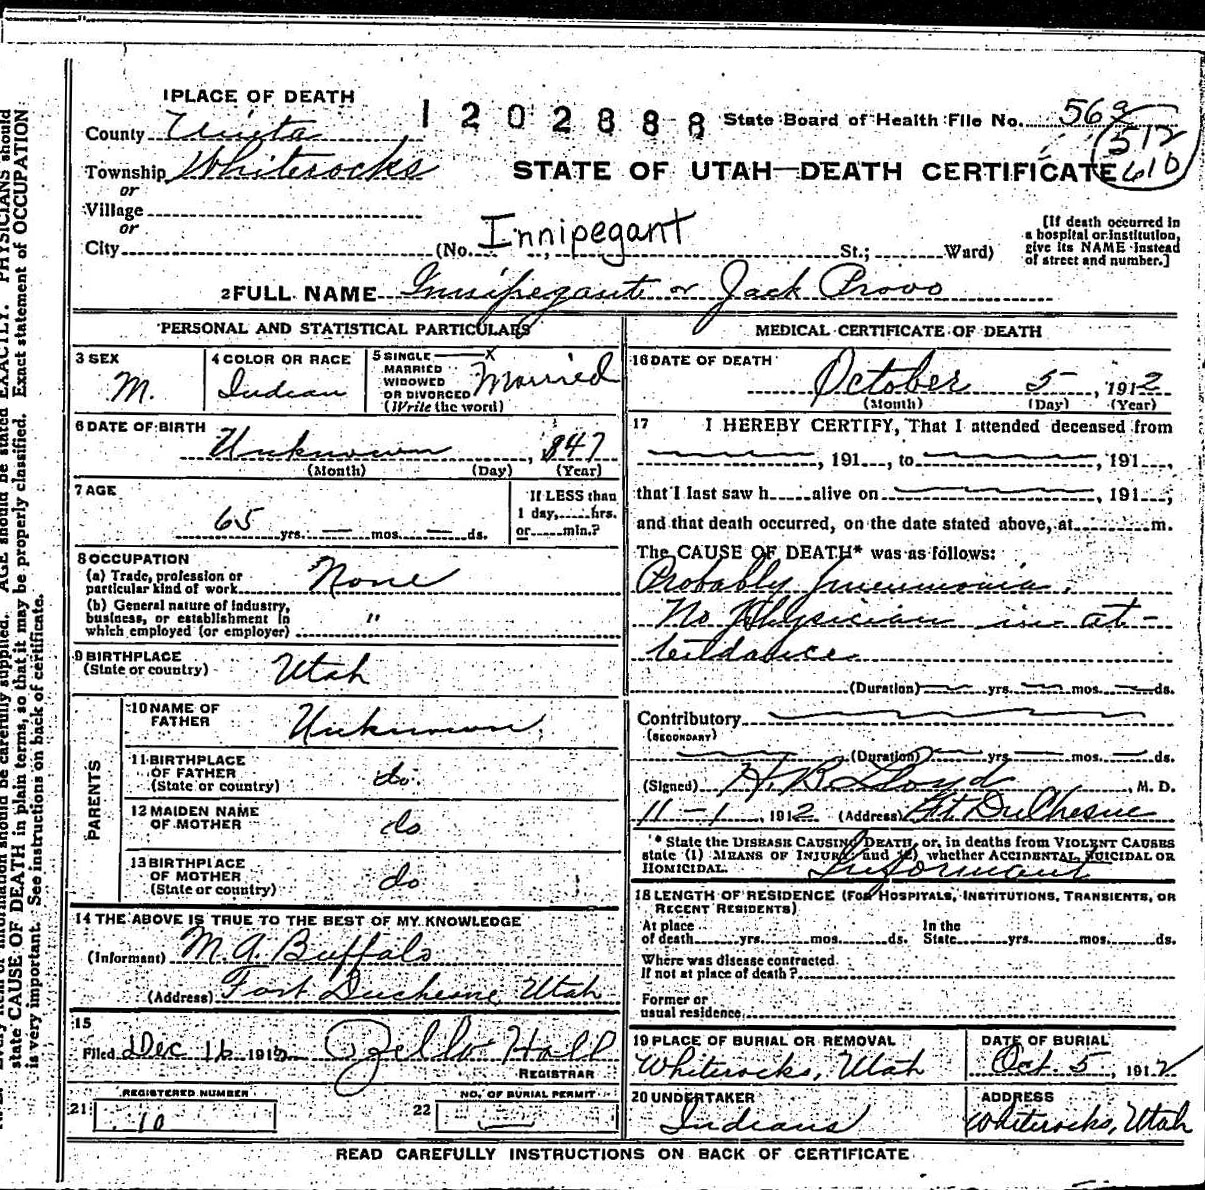 1 PLACE OF DEATH
County Uinta
1 2 0 2 8 8 8
State Board of Health File No. 569
512
610
Township Whiterocks
STATE OF UTAH—DEATH CERTIFICATE
or
Village
or
City (No. Innipegant St.; Ward)
[If death occurred in a hospital or institution, give its NAME instead of street and number.]
2 FULL NAME Innipegante or Jack Provo
PERSONAL AND STATISTICAL PARTICULARS
3 SEX
M.
4 COLOR OR RACE
Indian
5 SINGLE X
MARRIED
WIDOWED
OR DIVORCED
(Write the word)
Married
6 DATE OF BIRTH
Unknown, 847
(Month) (Day) (Year)
7 AGE
65 yrs. — mos. — ds.
If LESS than
1 day, hrs.
or min.?
8 OCCUPATION
(a) Trade, profession or
particular kind of work None
(b) General nature of industry,
business, or establishment in
which employed (or employer) "
9 BIRTHPLACE
(State or country) Utah
PARENTS
10 NAME OF
FATHER Unknown
11 BIRTHPLACE
OF FATHER
(State or country) do.
12 MAIDEN NAME
OF MOTHER do
13 BIRTHPLACE
OF MOTHER
(State or country) do
14 THE ABOVE IS TRUE TO THE BEST OF MY KNOWLEDGE
(Informant) M. A. Buffalo
(Address) Fort Duchesne, Utah
15
Filed Dec 16 1912 Ozello Hall
REGISTRAR
REGISTERED NUMBER
21 10
NO. OF BURIAL PERMIT
22 —
MEDICAL CERTIFICATE OF DEATH
16 DATE OF DEATH
October 5, 1912
(Month) (Day) (Year)
17 I HEREBY CERTIFY, That I attended deceased from
, 191 , to , 191 ,
that I last saw h alive on , 191 ,
and that death occurred, on the date stated above, at m.
The CAUSE OF DEATH* was as follows:
Probably Pneumonia.
No Physician in at-
tendance
(Duration) — yrs. — mos. — ds.
Contributory
(SECONDARY)
(Duration) — yrs. — mos. — ds.
(Signed) H. B. Lloyd, M. D.
11 - 1, 1912 (Address) Ft DuChesne
* State the DISEASE CAUSING DEATH, or, in deaths from VIOLENT CAUSES
state (1) MEANS OF INJURY; and (2) whether ACCIDENTAL, SUICIDAL OR
HOMICIDAL. Informant
18 LENGTH OF RESIDENCE (FOR HOSPITALS, INSTITUTIONS, TRANSIENTS, OR
RECENT RESIDENTS)
At place
of death yrs. mos. ds.
In the
State yrs. mos. ds.
Where was disease contracted
If not at place of death?
Former or
usual residence
19 PLACE OF BURIAL OR REMOVAL
Whiterocks, Utah
DATE OF BURIAL
Oct. 5, 1912
20 UNDERTAKER
Indians
ADDRESS
Whiterocks, Utah
READ CAREFULLY INSTRUCTIONS ON BACK OF CERTIFICATE
information should be carefully supplied. AGE should be stated EXACTLY. PHYSICIANS should
state CAUSE OF DEATH in plain terms, so that it may be properly classified. Exact statement of OCCUPATION
is very important. See instructions on back of certificate.